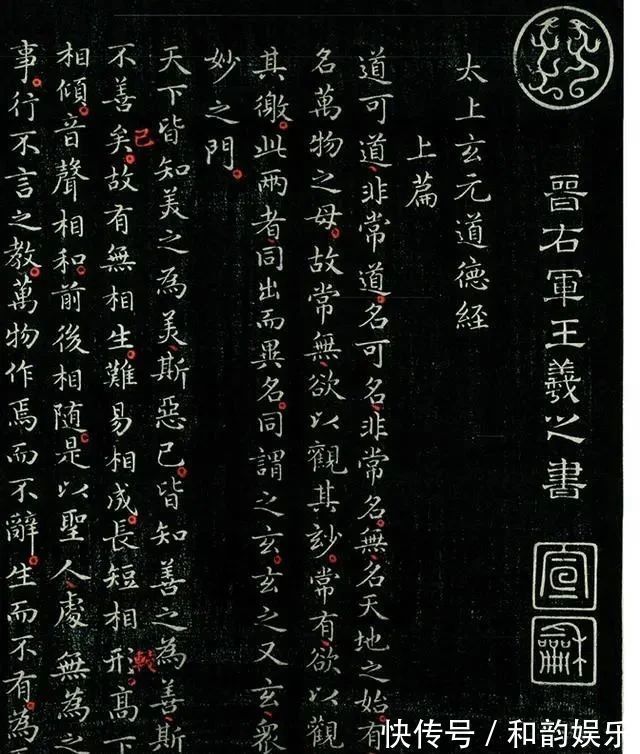 晉右軍王羲之書
宣
龢
太上玄元道德經
上篇
道可道、非常道。名可名、非常名。無、名天地之始。有
名萬物之母。故常無、欲以觀其玅。常有、欲以觀
其徼。此兩者、同出而異名。同謂之玄。玄之又玄、衆
妙之門。
天下皆知美之為美、斯惡已。皆知善之為善、斯
不善矣。故有無相生。難易相成。長短相形。高下
已
較
相傾。音聲相和。前後相隨。是以聖人、處無為之
事。行不言之教。萬物作焉而不辭。生而不有。為
快传号 / 和韵娱乐